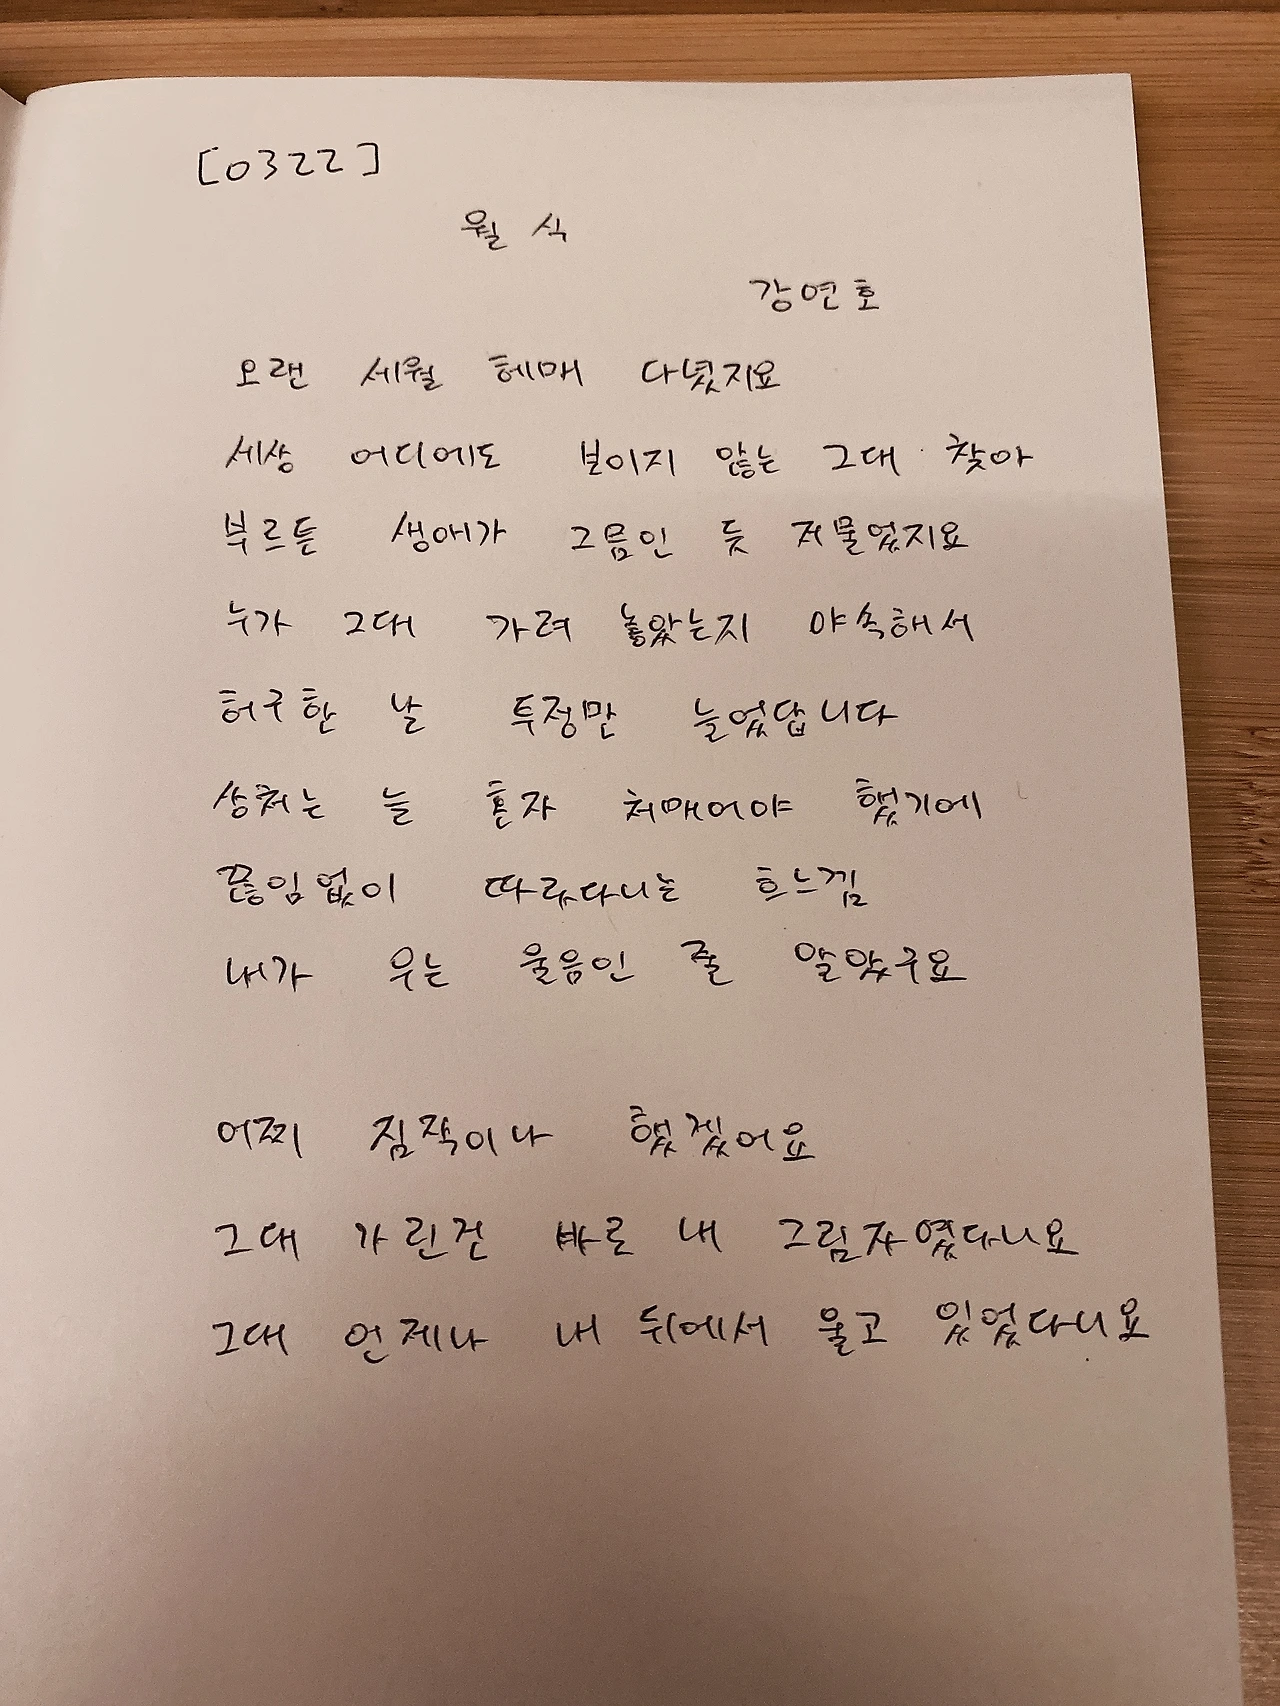 [0322]
월식
강연호
오랜 세월 헤매 다녔지요
세상 어디에도 보이지 않는 그대 찾아
부르튼 생애가 그믐인 듯 저물었지요
누가 그대 가려 놓았는지 야속해서
허구한 날 투정만 늘었답니다
상처는 늘 혼자 처매어야 했기에
끊임없이 따라다니는 흐느낌
내가 우는 울음인 줄 알았구요
어찌 짐작이나 했겠어요
그대 가린건 바로 내 그림자였다니요
그대 언제나 내 뒤에서 울고 있었다니요